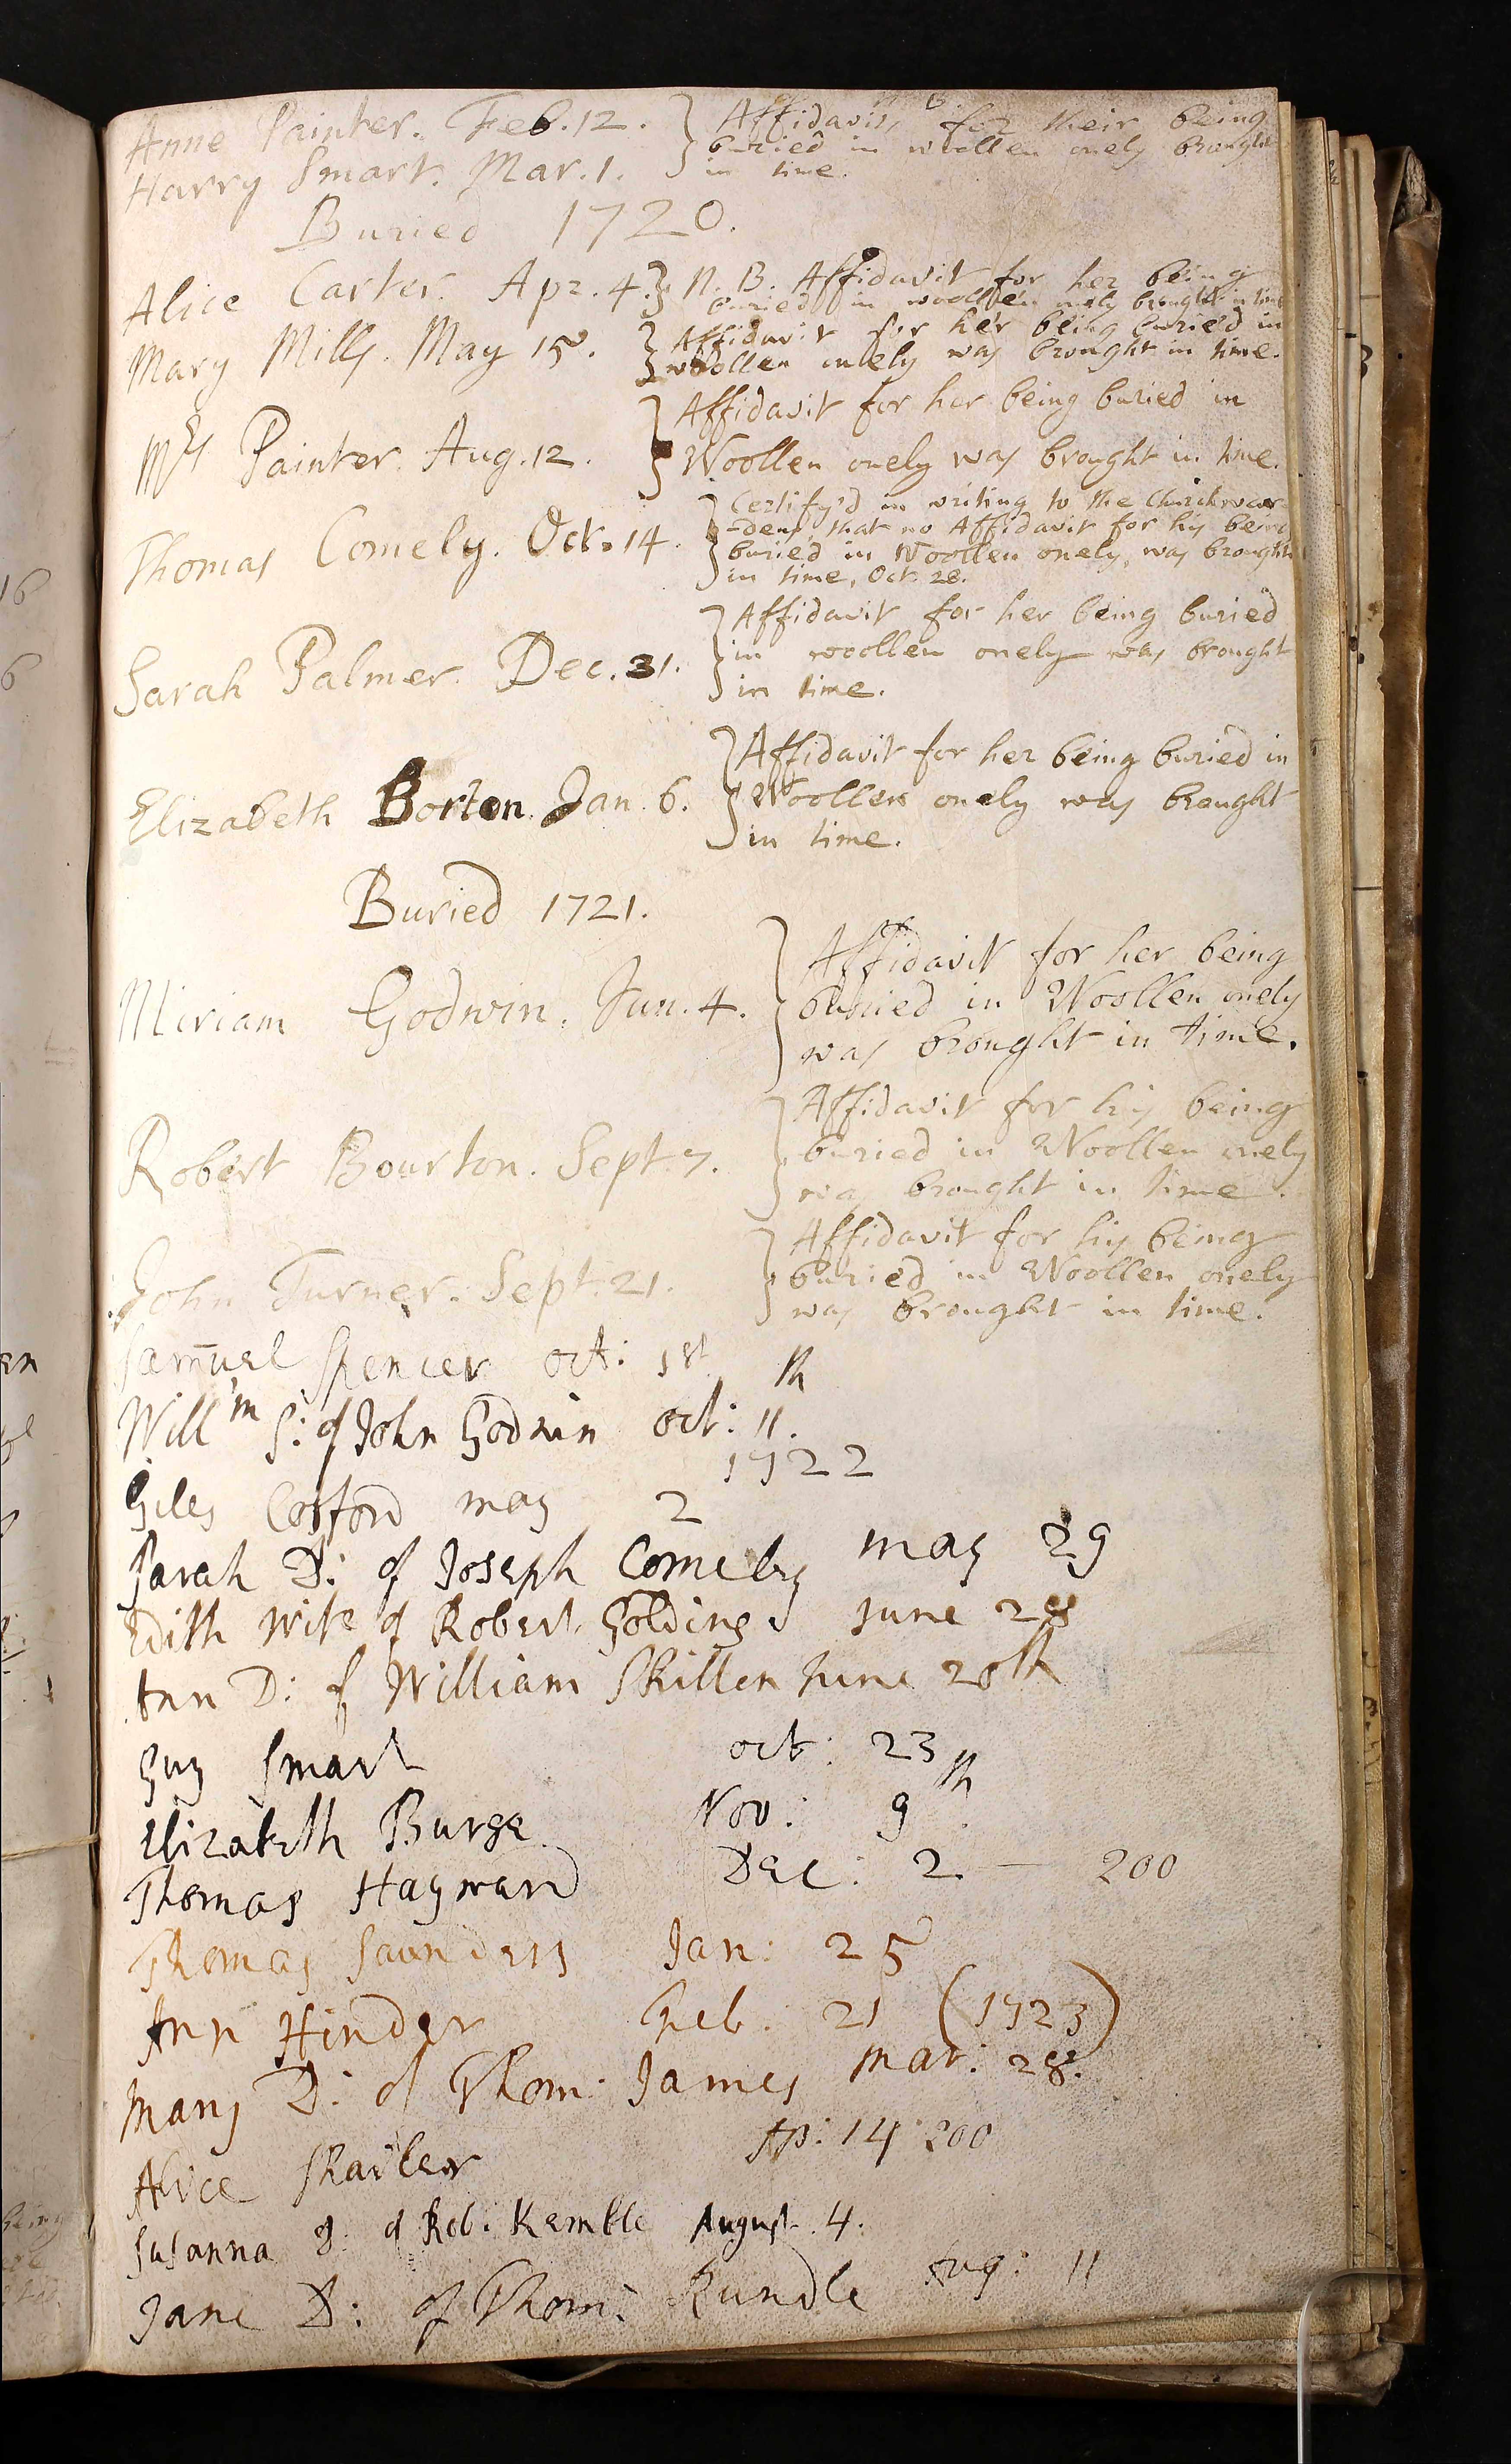 Anne Painter. Feb. 12. } Affidavits for their being
buried in woollen onely brought
Harry Smart. Mar. 1. in time.
Buried 1720.
Alice Carter. Apr. 4. } N. B. Affidavit for her being
buried in woollen onely brought in time
Mary Mills. May 15. } Affidavit for her being buried in
woollen onely was brought in time.
Mrs Painter. Aug. 12. } Affidavit for her being buried in
Woollen onely was brought in time.
Thomas Comely. Oct. 14. } Certify'd in writing to the Churchwar
-dens, that no Affidavit for his being
buried in Woollen onely, was brought
in time, Oct. 28.
Sarah Palmer. Dec. 31. } Affidavit for her being buried
in woollen onely was brought
in time.
Elizabeth Borton. Jan. 6. } Affidavit for her being buried in
Woollen onely was brought
in time.
Buried 1721.
Miriam Godwin. Jun. 4. } Affidavit for her being
buried in Woollen onely
was brought in time.
Robert Bourton. Sept. 7. } Affidavit for his being
buried in Woollen onely
was brought in time.
John Turner. Sept. 21. } Affidavit for his being
buried in Woollen onely
was brought in time.
Samuel Spencer oct: 1st
Will'm S: of John Godwin oct: 11th.
1722
Giles Cosford may 2
Sarah D: of Joseph Comely may 29
Edith wife of Robert Golding June 28
Ann D: of William Skillen June 28th
Guy Smart oct: 23
Elizabeth Burge Nov: 9th
Thomas Hayward Dec: 2 — 200
Thomas Saunders Jan: 25
Ann Hinder Feb: 21 (1723)
Mary D: of Thom: James mar: 28.
Alice Ap: 14 200
Susanna d: of Rob: Kemble August. 4.
Jane D: of Thom: Rundle Aug: 11